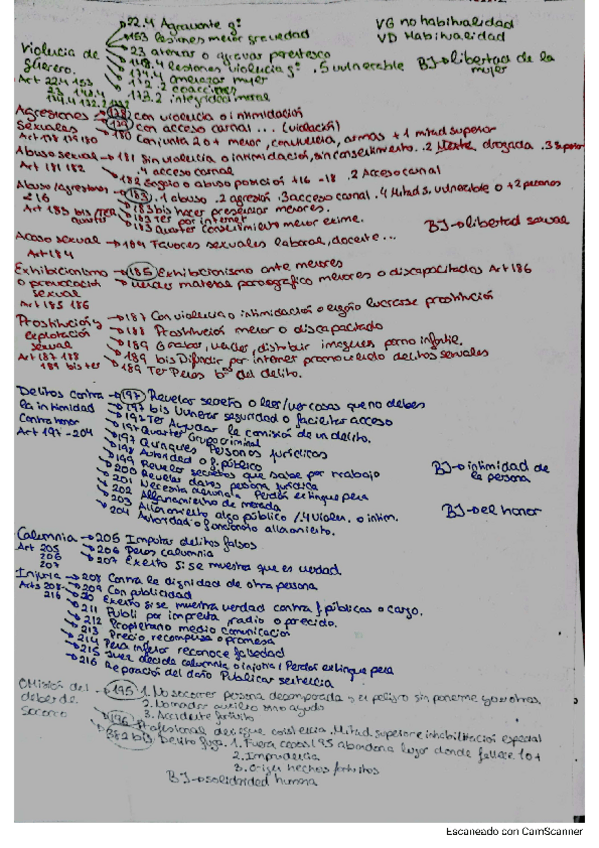 22.4 Agravante gº
VG no habitualidad
153 lesiones menor gravedad
VD Habitualidad
Violencia de género.
23 atenuar o agravar parentesco
148.4 lesiones violencia gº .5 vulnerable
BJ→libertad de la mujer
171.4 amenazas mujer
172.2 coacciones
173.2 integridad moral
Art 22.4 153
23 148.4
171.4 172.2 173.2
Agresiones Sexuales
178 con violencia o intimidación
179 con acceso carnal ... (violación)
180 Conjunta 2 o + menor, convivencia, armas + 1 mitad superior
Art 178 179 180
Abuso sexual → 181 Sin violencia o intimidación, sin consentimiento. .2 Mente, drogada .3 Superior
.4 acceso carnal
Art 181 182
182 Engaño o abuso posición +16 -18 .2 Acceso carnal
Abuso/agresiones -16
183 .1 abuso .2 agresión .3 acceso carnal .4 Mitad S. vulnerable o + 2 personas
Art 183 bis/TER quater
183 bis hacer presenciar menores.
183 ter por internet
183 quater consentimiento menor exime.
BJ→libertad sexual
Acoso sexual → 184 Favores sexuales laboral, docente...
Art 184
Exhibicionismo o provocación sexual
185 Exhibicionismo ante menores
vender material pornográfico menores o discapacitados Art 186
Art 185 186
Prostitución y explotación sexual
187 Con violencia o intimidación o engaño lucrarse prostitución
188 Prostitución menor o discapacitado
189 Grabar, vender, distribuir imágenes porno infantil.
189 bis Difundir por internet promoviendo delitos sexuales
189 Ter Penas del delito.
Art 187 188
189 bis ter
Delitos contra la intimidad
197 Revelar secreto o leer/ver cosas que no debes
197 bis Vulnerar seguridad o facilitar acceso
197 Ter Ayudar la comisión de un delito.
197 Quarter Grupo criminal
197 Quinquies Personas jurídicas
198 Autoridad o f. público
199 Revelar secretos que sabe por trabajo
200 Revelar datos persona jurídica
201 Necesita denuncia. Perdón extingue pena
202 Allanamiento de morada
203 Allanamiento algo público /.4 Violen. o intim.
204 Autoridad o funcionario allanamiento.
Contra honor
Art 197-204
BJ→intimidad de la persona
BJ→el honor
Calumnia → 205 Imputar delitos falsos
206 Penas calumnia
207 Exento si se muestra que es verdad.
Art 205
206
207
Injuria → 208 Contra la dignidad de otra persona
209 Con publicidad
Arts 208-216
210 Exento si se muestra verdad contra f. públicos o cargo.
211 Publi por imprenta, radio o parecido.
212 Propietario medio comunicación
213 Precio, recompensa o promesa
214 Pena inferior reconoce falsedad
215 Juez decide calumnia o injuria / Perdón extingue pena
216 Reparación del daño Publicar sentencia
Omisión del deber de socorro
195 1. No socorrer persona desamparada y en peligro sin ponerme yo u otros.
2. No mandar auxilio sino ayudo
3. Accidente fortuito
196 Profesional deniegue asistencia. Mitad superior e inhabilitación especial
382 bis. Delito fuga. 1. Fuera casos 195 abandona lugar donde fallece 1 o +
2. Imprudencia
3. Origen hechos fortuitos
BJ→solidaridad humana
Escaneado con CamScanner